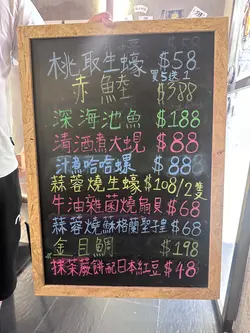 桃取生蠔 $58
買5送1
赤鯥 $388
深海池魚 $188
清酒煮大蜆 $88
汁煮哈哈螺 $88
蒜蓉燒生蠔 $108/2隻
牛油雜菌燒扇貝 $68
蒜蓉燒蘇格蘭聖子皇 $68
金目鯛 $198
抹茶蕨餅配日本紅豆 $48